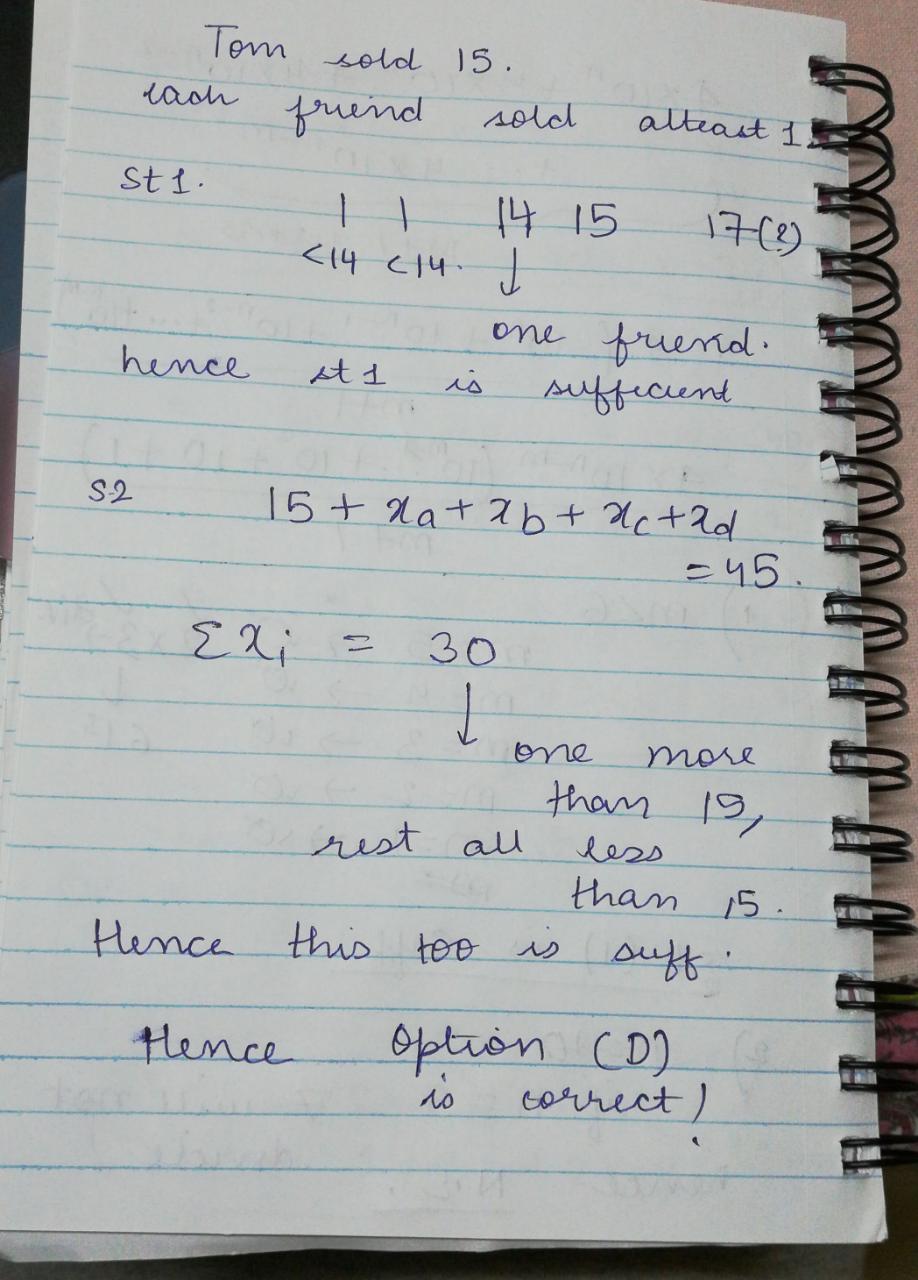 Tom sold 15.
each friend sold atleast 1.
St 1.
1 1 14 15 17(2)
<14 <14. ↓
one friend.
hence st 1 is sufficient
S-2 15 + xa + xb + xc + xd
= 45.
Σxi = 30
↓ one more
than 15,
rest all less
than 15.
Hence this too is suff.
Hence Option (D)
is correct!